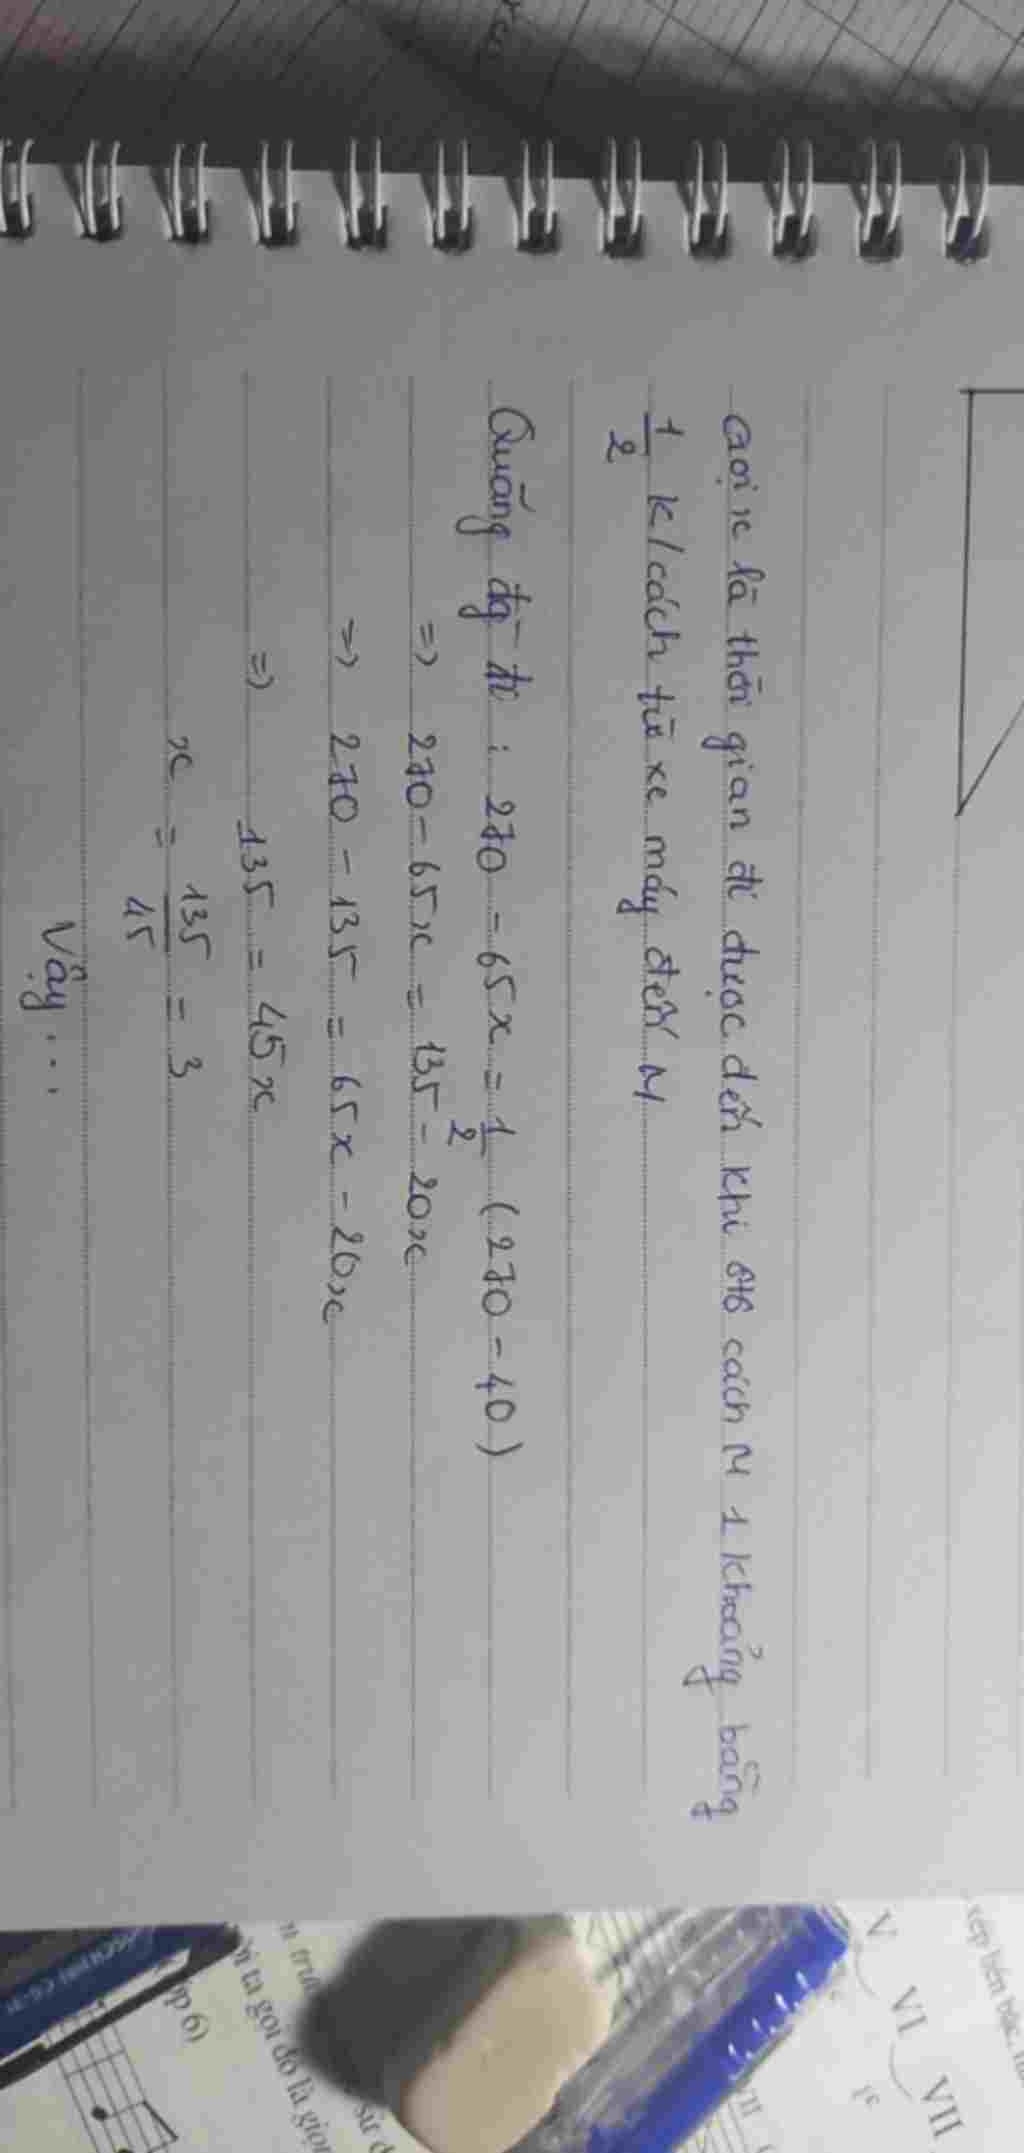 Gọi x là thời gian đi được đến khi ôtô cách M 1 khoảng bằng
1/2 k/cách từ xe máy đến M
Quãng đg đi : 270 - 65x = 1/2 (270 - 40)
=> 270 - 65x = 135 - 20x
=> 270 - 135 = 65x - 20x
=> 135 = 45x
x = 135/45 = 3
Vậy...
V VI VII
xếp bên bậc
VII
ta gọi đó là giọng